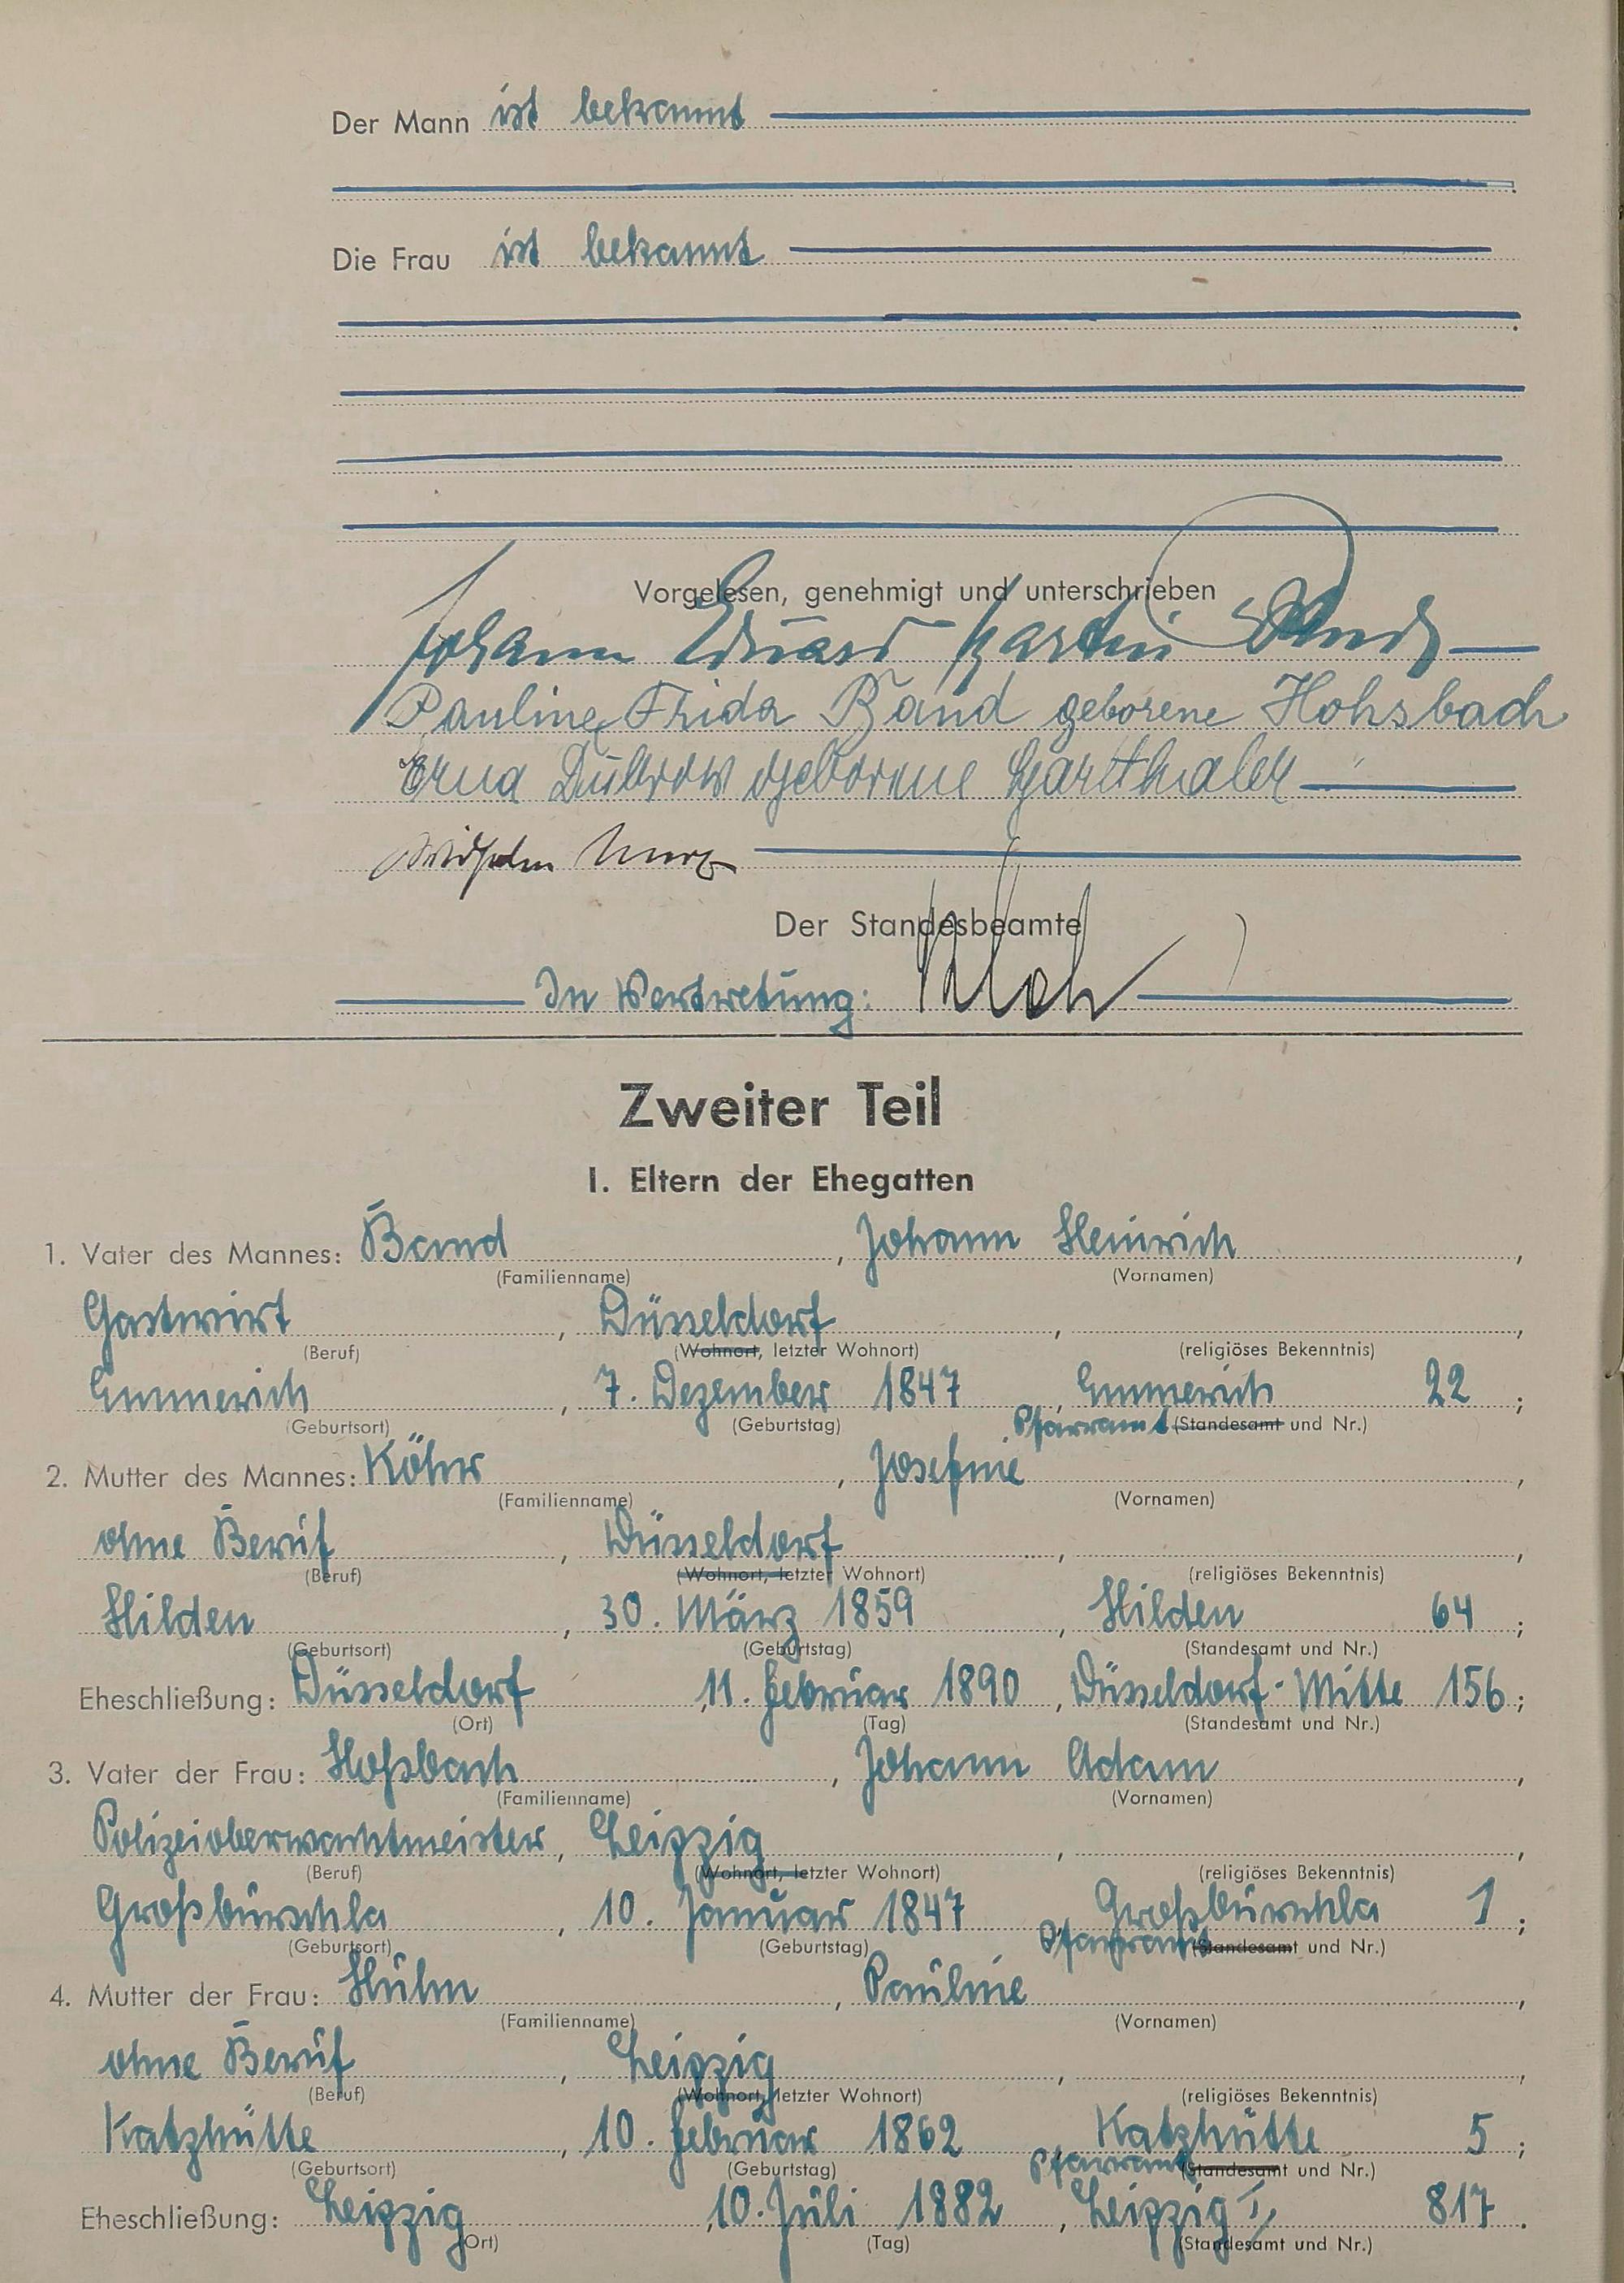 Der Mann ist bekannt
Die Frau ist bekannt
Vorgelesen, genehmigt und unterschrieben
Johann Eduard Martin Band
Pauline Frida Band geborene Hohsbach
Erna Dubrow geborene Garthaler
Wilhelm
Der Standesbeamte
In Vertretung:
Zweiter Teil
I. Eltern der Ehegatten
1. Vater des Mannes: Band, Johann Heinrich,
(Familienname) (Vornamen)
Gastwirt, Düsseldorf, ,
(Beruf) (Wohnort, letzter Wohnort) (religiöses Bekenntnis)
Emmerich, 7. Dezember 1847, Emmerich 22;
(Geburtsort) (Geburtstag) Pfarramt (Standesamt und Nr.)
2. Mutter des Mannes: Köhr, Josefine,
(Familienname) (Vornamen)
ohne Beruf, Düsseldorf, ,
(Beruf) (Wohnort, letzter Wohnort) (religiöses Bekenntnis)
Hilden, 30. März 1859, Hilden 64;
(Geburtsort) (Geburtstag) (Standesamt und Nr.)
Eheschließung: Düsseldorf, 11. Februar 1890, Düsseldorf-Mitte 156;
(Ort) (Tag) (Standesamt und Nr.)
3. Vater der Frau: Hoßbach, Johann Adam,
(Familienname) (Vornamen)
Polizeioberwachtmeister, Leipzig, ,
(Beruf) (Wohnort, letzter Wohnort) (religiöses Bekenntnis)
Großburschla, 10. Januar 1847 Großburschla 1;
(Geburtsort) (Geburtstag) Pfarramt (Standesamt und Nr.)
4. Mutter der Frau: Huhn, Pauline,
(Familienname) (Vornamen)
ohne Beruf, Leipzig, ,
(Beruf) (Wohnort, letzter Wohnort) (religiöses Bekenntnis)
Katzhütte, 10. Februar 1862 Katzhütte 5;
(Geburtsort) (Geburtstag) Pfarramt (Standesamt und Nr.)
Eheschließung: Leipzig, 10. Juli 1882, Leipzig I, 817.
(Ort) (Tag) (Standesamt und Nr.)